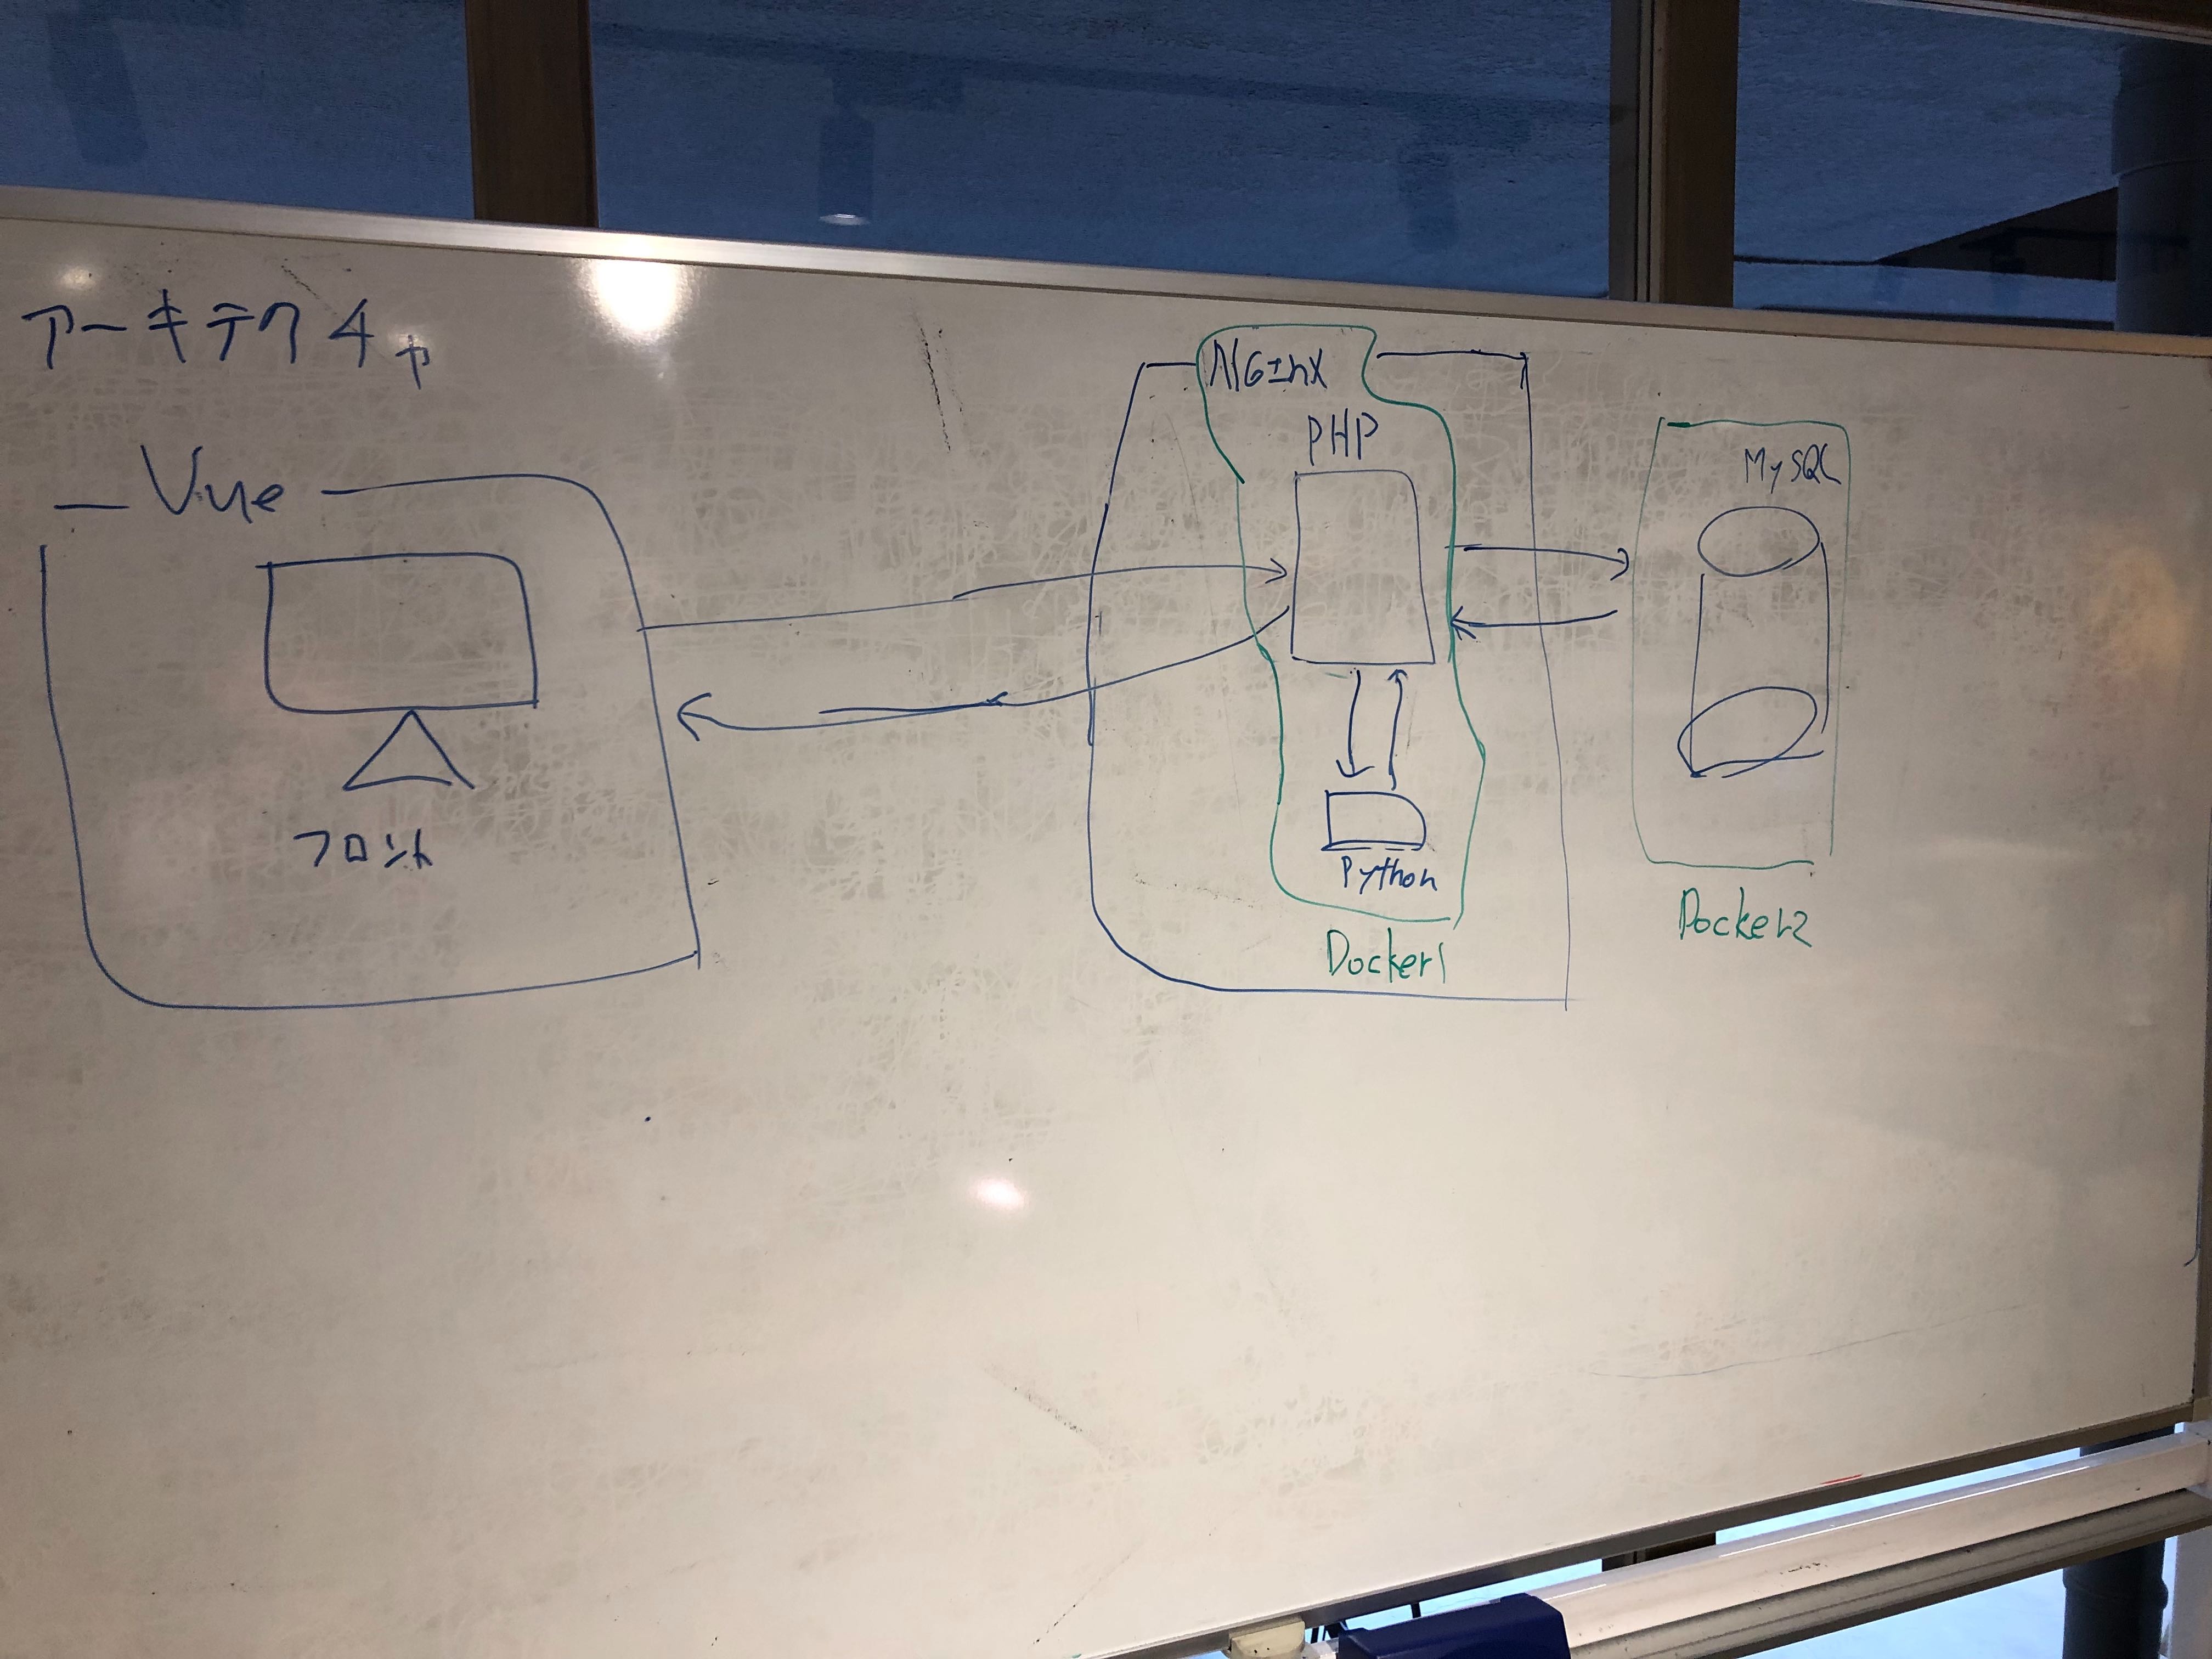 アーキテクチャ
Vue
フロント
NGInX
PHP
Python
Docker1
MySQL
Docker2